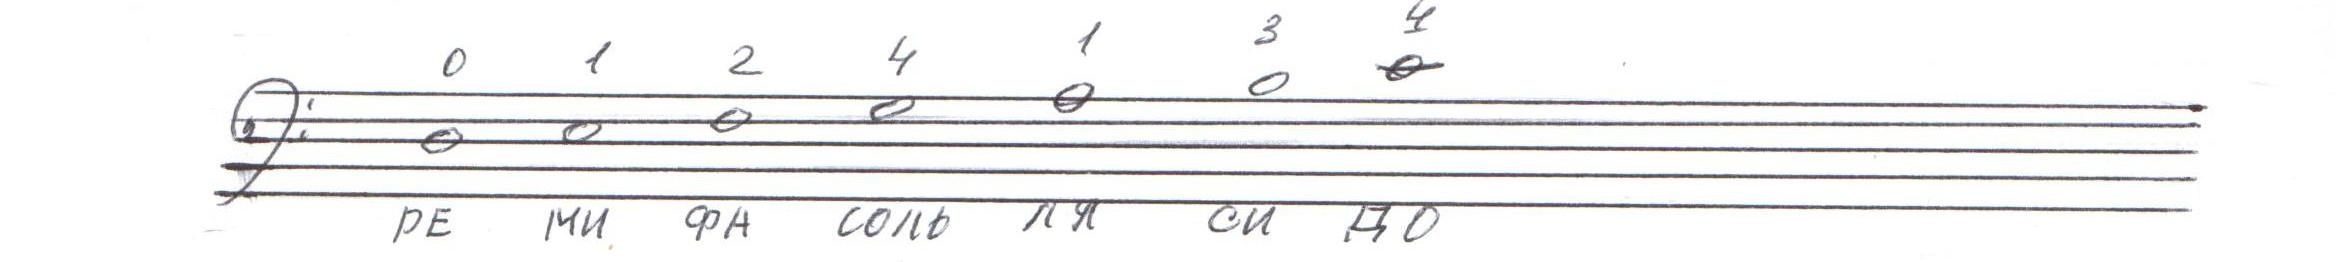 0 1 2 4 1 3 4
РЕ МИ ФА СОЛЬ ЛЯ СИ ДО